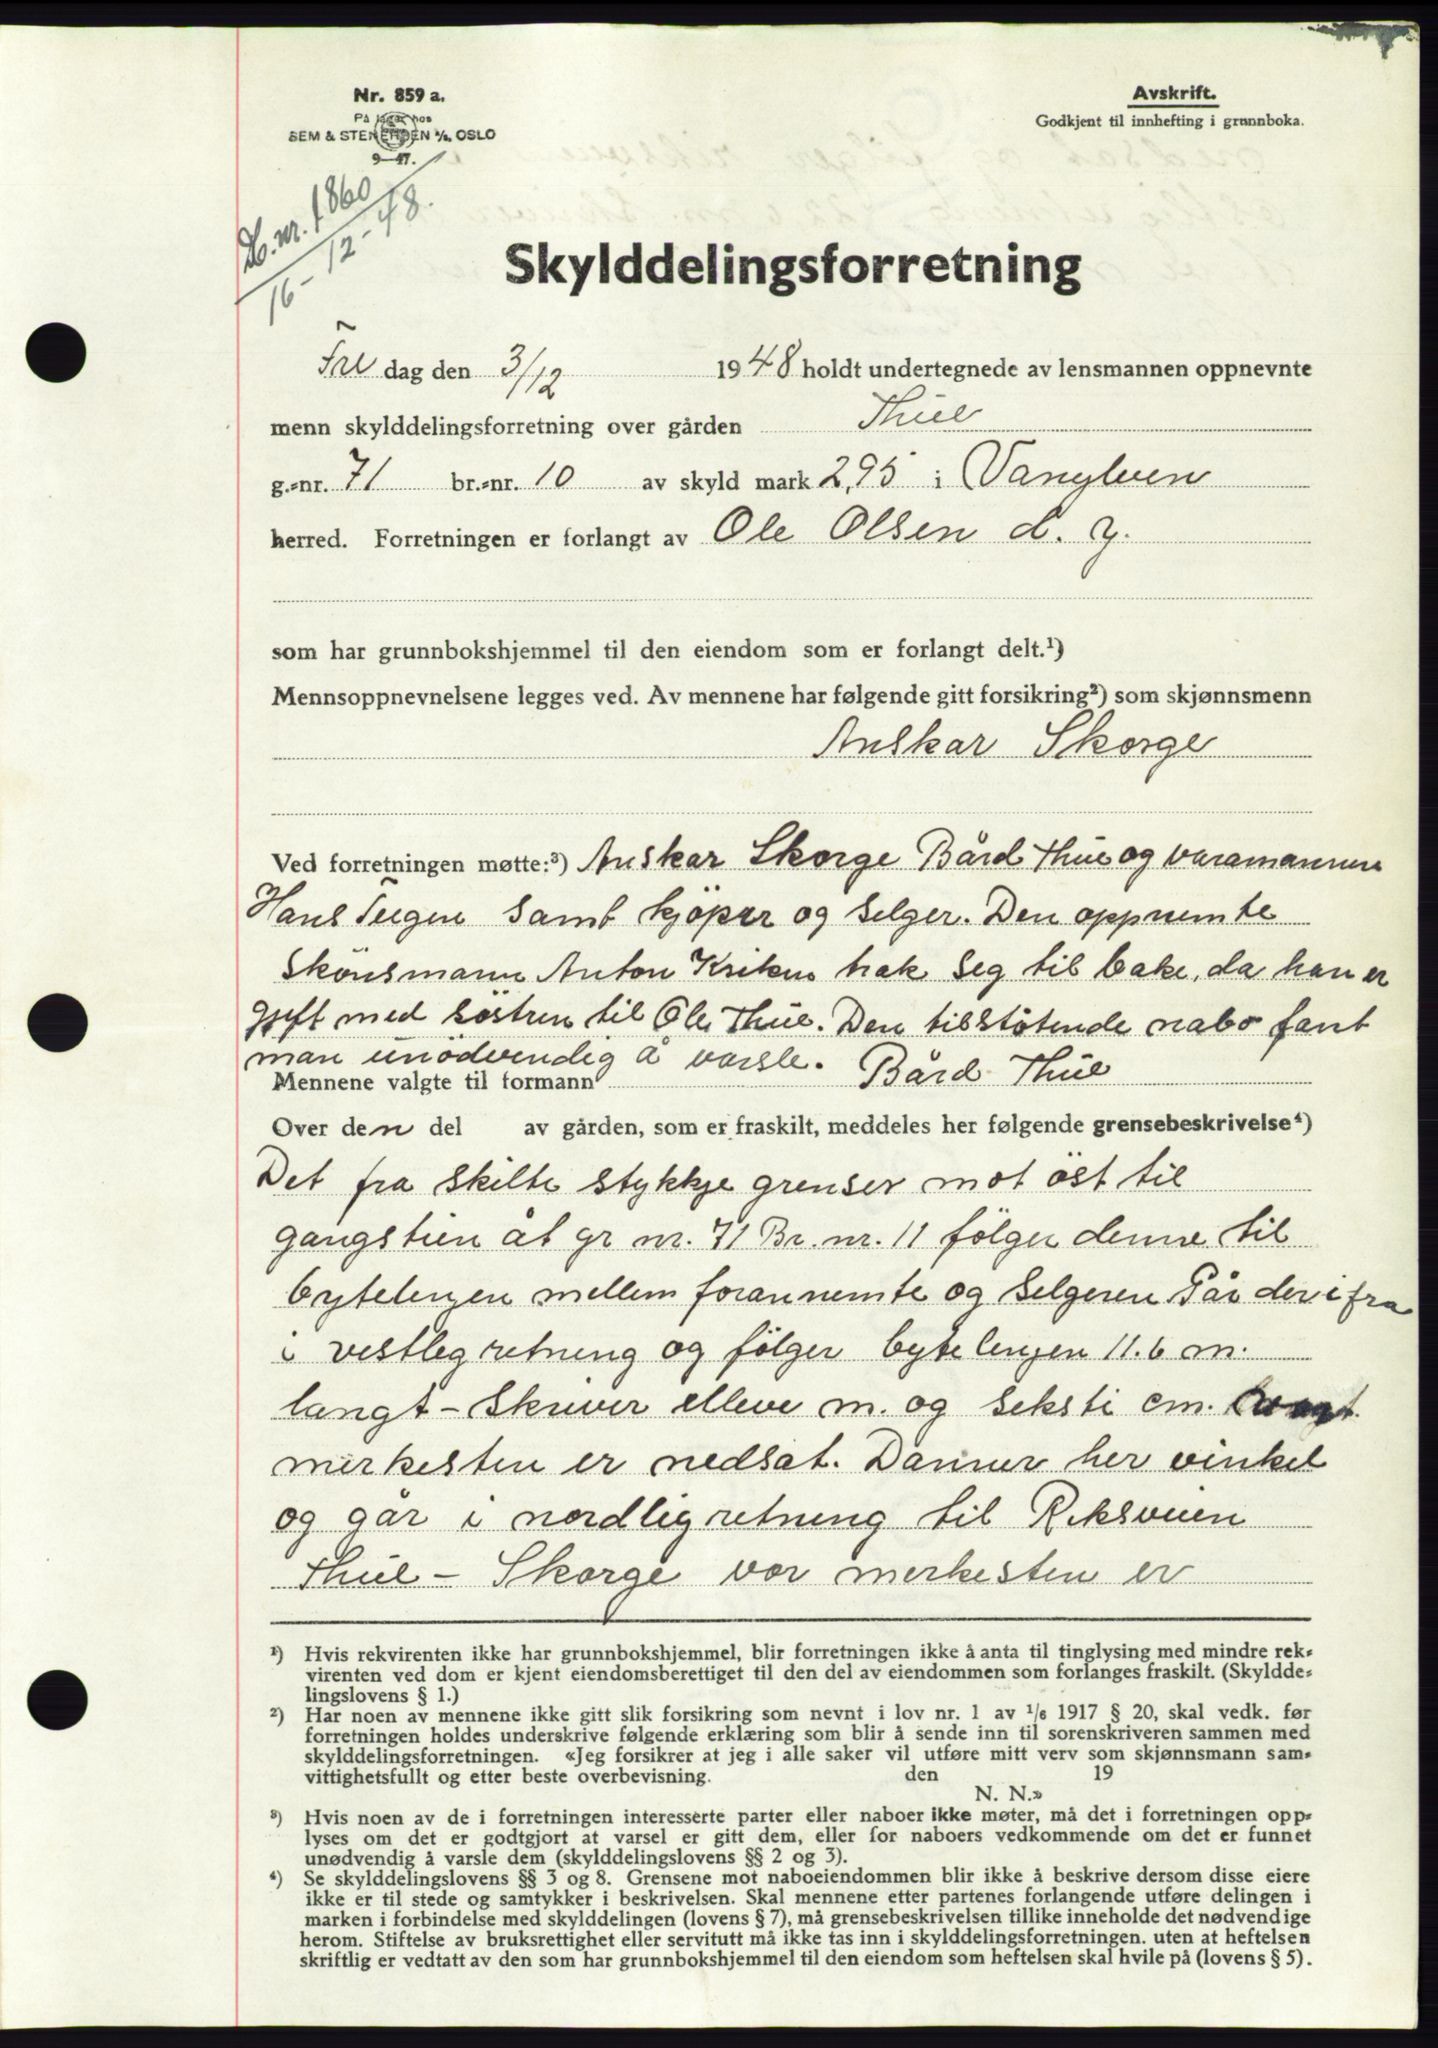 Nr. 859 a.
På lager hos
SEM & STENERSEN A/S OSLO
9-47.
Avskrift.
Godkjent til innhefting i grunnboka.
Db. nr. 1860
16-12-48.
Skylddelingsforretning
Fre dag den 3/12 1948 holdt undertegnede av lensmannen oppnevnte
menn skylddelingsforretning over gården Thue
g.=nr. 71 br.=nr. 10 av skyld mark 2,95 i Vanylven
herred. Forretningen er forlangt av Ole Olsen d. y.
som har grunnbokshjemmel til den eiendom som er forlangt delt.¹)
Mennsoppnevnelsene legges ved. Av mennene har følgende gitt forsikring²) som skjønnsmenn
Anskar Skorge
Ved forretningen møtte:³) Anskar Skorge Bård Thue og varamannen
Hans Teigen samt kjöper og selger. Den oppnemte
skönsmann Anton Kriken trak seg til bake, da han er
gjift med söstren til Ole Thue. Den tilstötende nabo fant
man unödvendig å varsle.
Mennene valgte til formann Bård Thue
Over den del av gården, som er fraskilt, meddeles her følgende grensebeskrivelse⁴)
Det fra skilte stykkje grenser mot öst til
gangstien åt gr nr. 71 Br. nr. 11 fölger denne til
bytelinjen mellem forannemte og selgeren Går der i fra
i vestleg retning og fölger bytelinjen 11.6 m.
langt - skriver elleve m. og seksti cm. langt.
merkesten er nedsat. Danner her vinkel
og går i nordlig retning til Riksveien
Thue - Skorge vor merkesten er
¹) Hvis rekvirenten ikke har grunnbokshjemmel, blir forretningen ikke å anta til tinglysing med mindre rek=
virenten ved dom er kjent eiendomsberettiget til den del av eiendommen som forlanges fraskilt. (Skyldde=
lingslovens § 1.)
²) Har noen av mennene ikke gitt slik forsikring som nevnt i lov nr. 1 av 1/6 1917 § 20, skal vedk. før
forretningen holdes underskrive følgende erklæring som blir å sende inn til sorenskriveren sammen med
skylddelingsforretningen. «Jeg forsikrer at jeg i alle saker vil utføre mitt verv som skjønnsmann sam=
vittighetsfullt og etter beste overbevisning. den 19
N. N.»
³) Hvis noen av de i forretningen interesserte parter eller naboer ikke møter, må det i forretningen opp=
lyses om det er godtgjort at varsel er gitt dem, eller for naboers vedkommende om det er funnet
unødvendig å varsle dem (skylddelingslovens §§ 2 og 3).
⁴) Se skylddelingslovens §§ 3 og 8. Grensene mot naboeiendommen blir ikke å beskrive dersom disse eiere
ikke er til stede og samtykker i beskrivelsen. Skal mennene etter partenes forlangende utføre delingen i
marken i forbindelse med skylddelingen (lovens § 7), må grensebeskrivelsen tillike inneholde det nødvendige
herom. Stiftelse av bruksrettighet eller servitutt må ikke tas inn i skylddelingsforretningen. uten at heftelsen
skriftlig er vedtatt av den som har grunnbokshjemmel til den eiendom som heftelsen skal hvile på (lovens § 5).